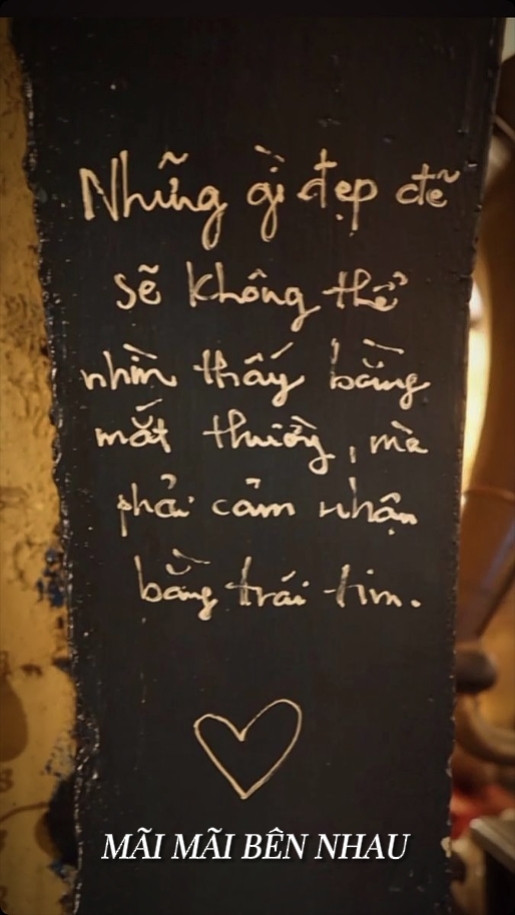 Những gì đẹp đẽ
sẽ không thể
nhìn thấy bằng
mắt thường, mà
phải cảm nhận
bằng trái tim.
MÃI MÃI BÊN NHAU